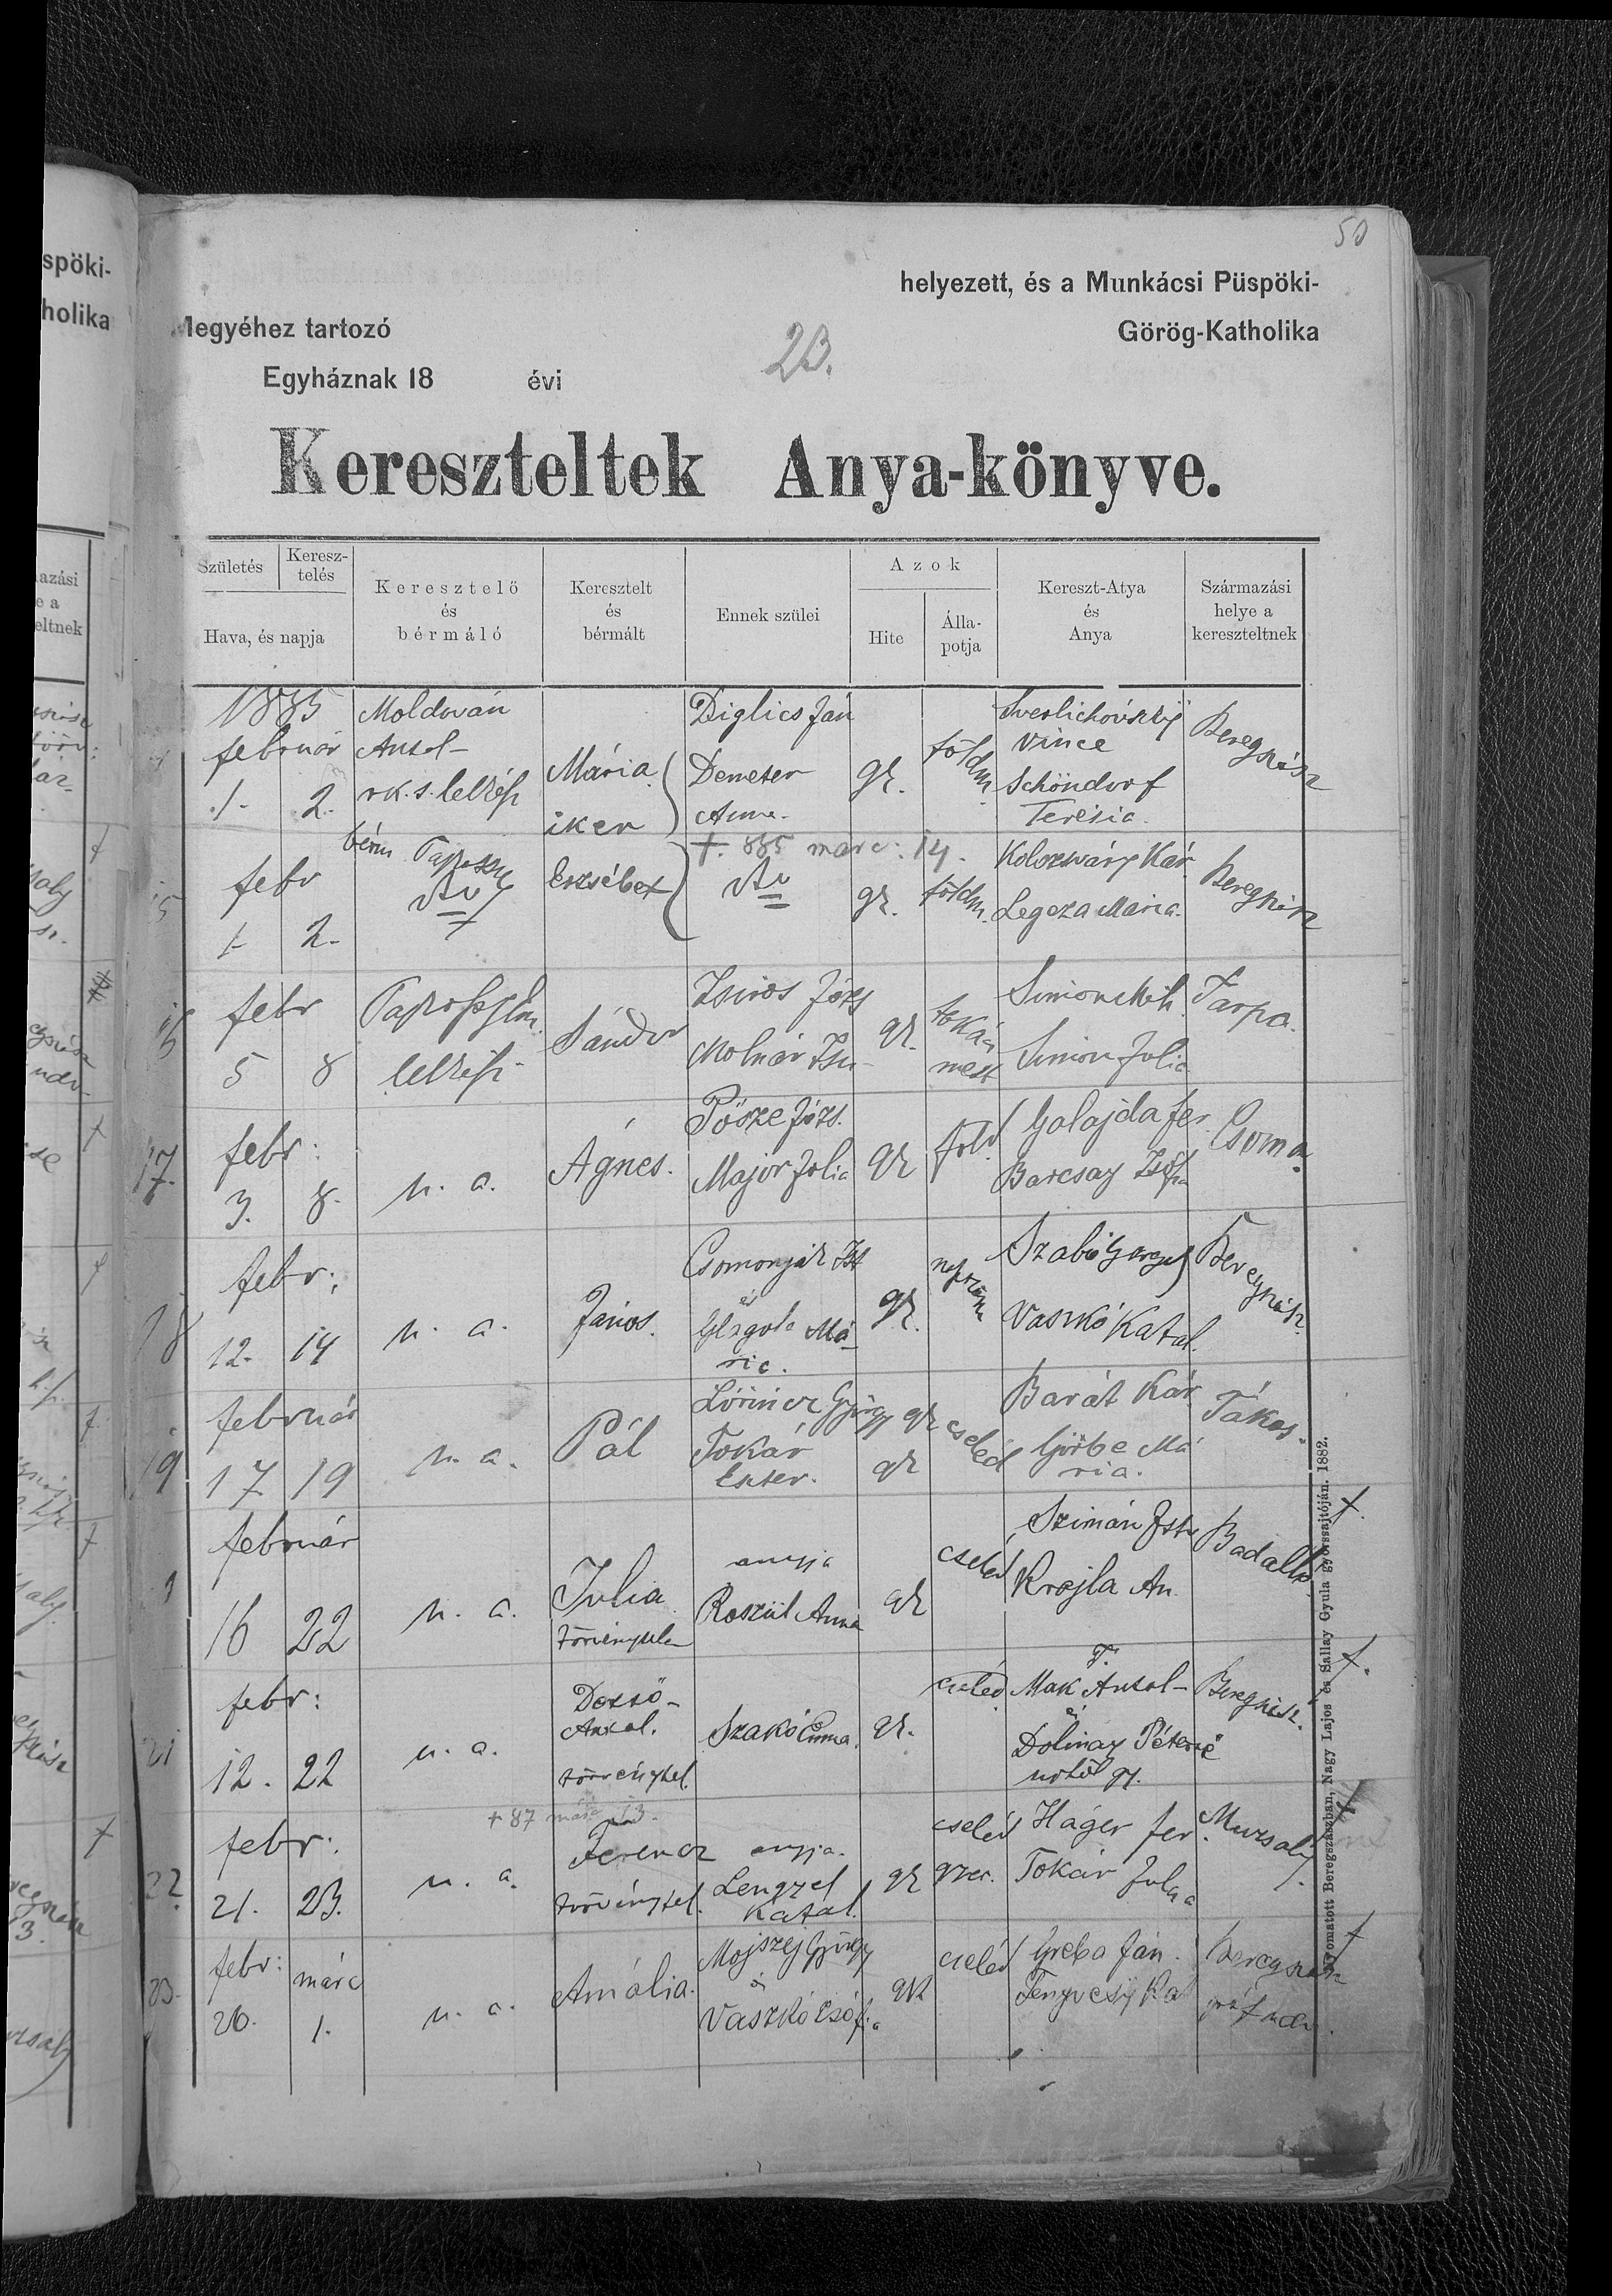 50
helyezett, és a Munkácsi Püspöki-
Megyéhez tartozó Görög-Katholika
23.
Egyháznak 18 évi
Kereszteltek Anya-könyve.
Születés Keresz-telés
Hava, és napja
Keresztelő és bérmáló
Keresztelt és bérmált
Ennek szülei
Azok
Hite
Álla-potja
Kereszt-Atya és Anya
Származási helye a kereszteltnek
1885 február 1. 2.
Moldován Antal r.k. s. lelkész
Mária iker
Diglics Ján
Demeter Anna.
gk. földm.
Vince
Schöndorf Terésia.
Beregszász
febr 1. 2.
bérm
Erzsébet
+. 885 marc: 14.
gk. földm.
Koloszváry Kár.
Legeza Mária.
Beregszász
febr 5 8
lelkész
Sándor
Józs
Molnár Zsu
gk.
Simon Mih.
Simon Julia
Tarpa.
17. febr: 3. 8.
u. a.
Ágnes.
Pösze Józs.
Major Julia
gk föld
Galajda fer.
Barcsay Zsófia
Csoma
18 febr: 12. 14
u. a.
János.
Csomonyák Ist
és
Glagola Mária.
gk. napszám
Szabó György
Vaszkó Katal.
Beregszász.
19 február 17. 19
u. a.
Pál
Lörincz György
Tokár Eszter.
gk
gk
cseléd
Barát Kár.
Görbe Mária.
Tákos.
február 16 22
u. a.
Julia
törvénytelen
anyja
Roszül Anna
gk cseléd
Szimán Istv
Krajla An.
Badalló
+.
21 febr: 12. 22
u. a.
Dezső-Antal.
törvénytel.
Szakó Emma.
gk. cseléd
Mak Antal
és
Dolinay Péterné
Beregszász.
+.
+ 87 márc 13.
22. febr: 21. 23.
u. a.
Ferencz
törvénytel.
anyja.
Lengyel Katal.
gk cseléd
Háger fer.
Tokár Julia
Muzsaly
+
23. febr: 26. márc 1.
u. a.
Amália.
Mojszej György
és
Vaszkó Zsófia
gk cseléd
Greba Ján.
Fenyvesy Kat
Beregszász
gróf udv.
+
Nyomatott Beregszászban, Nagy Lajos és Sallay Gyula gyorssajtóján. 1882.